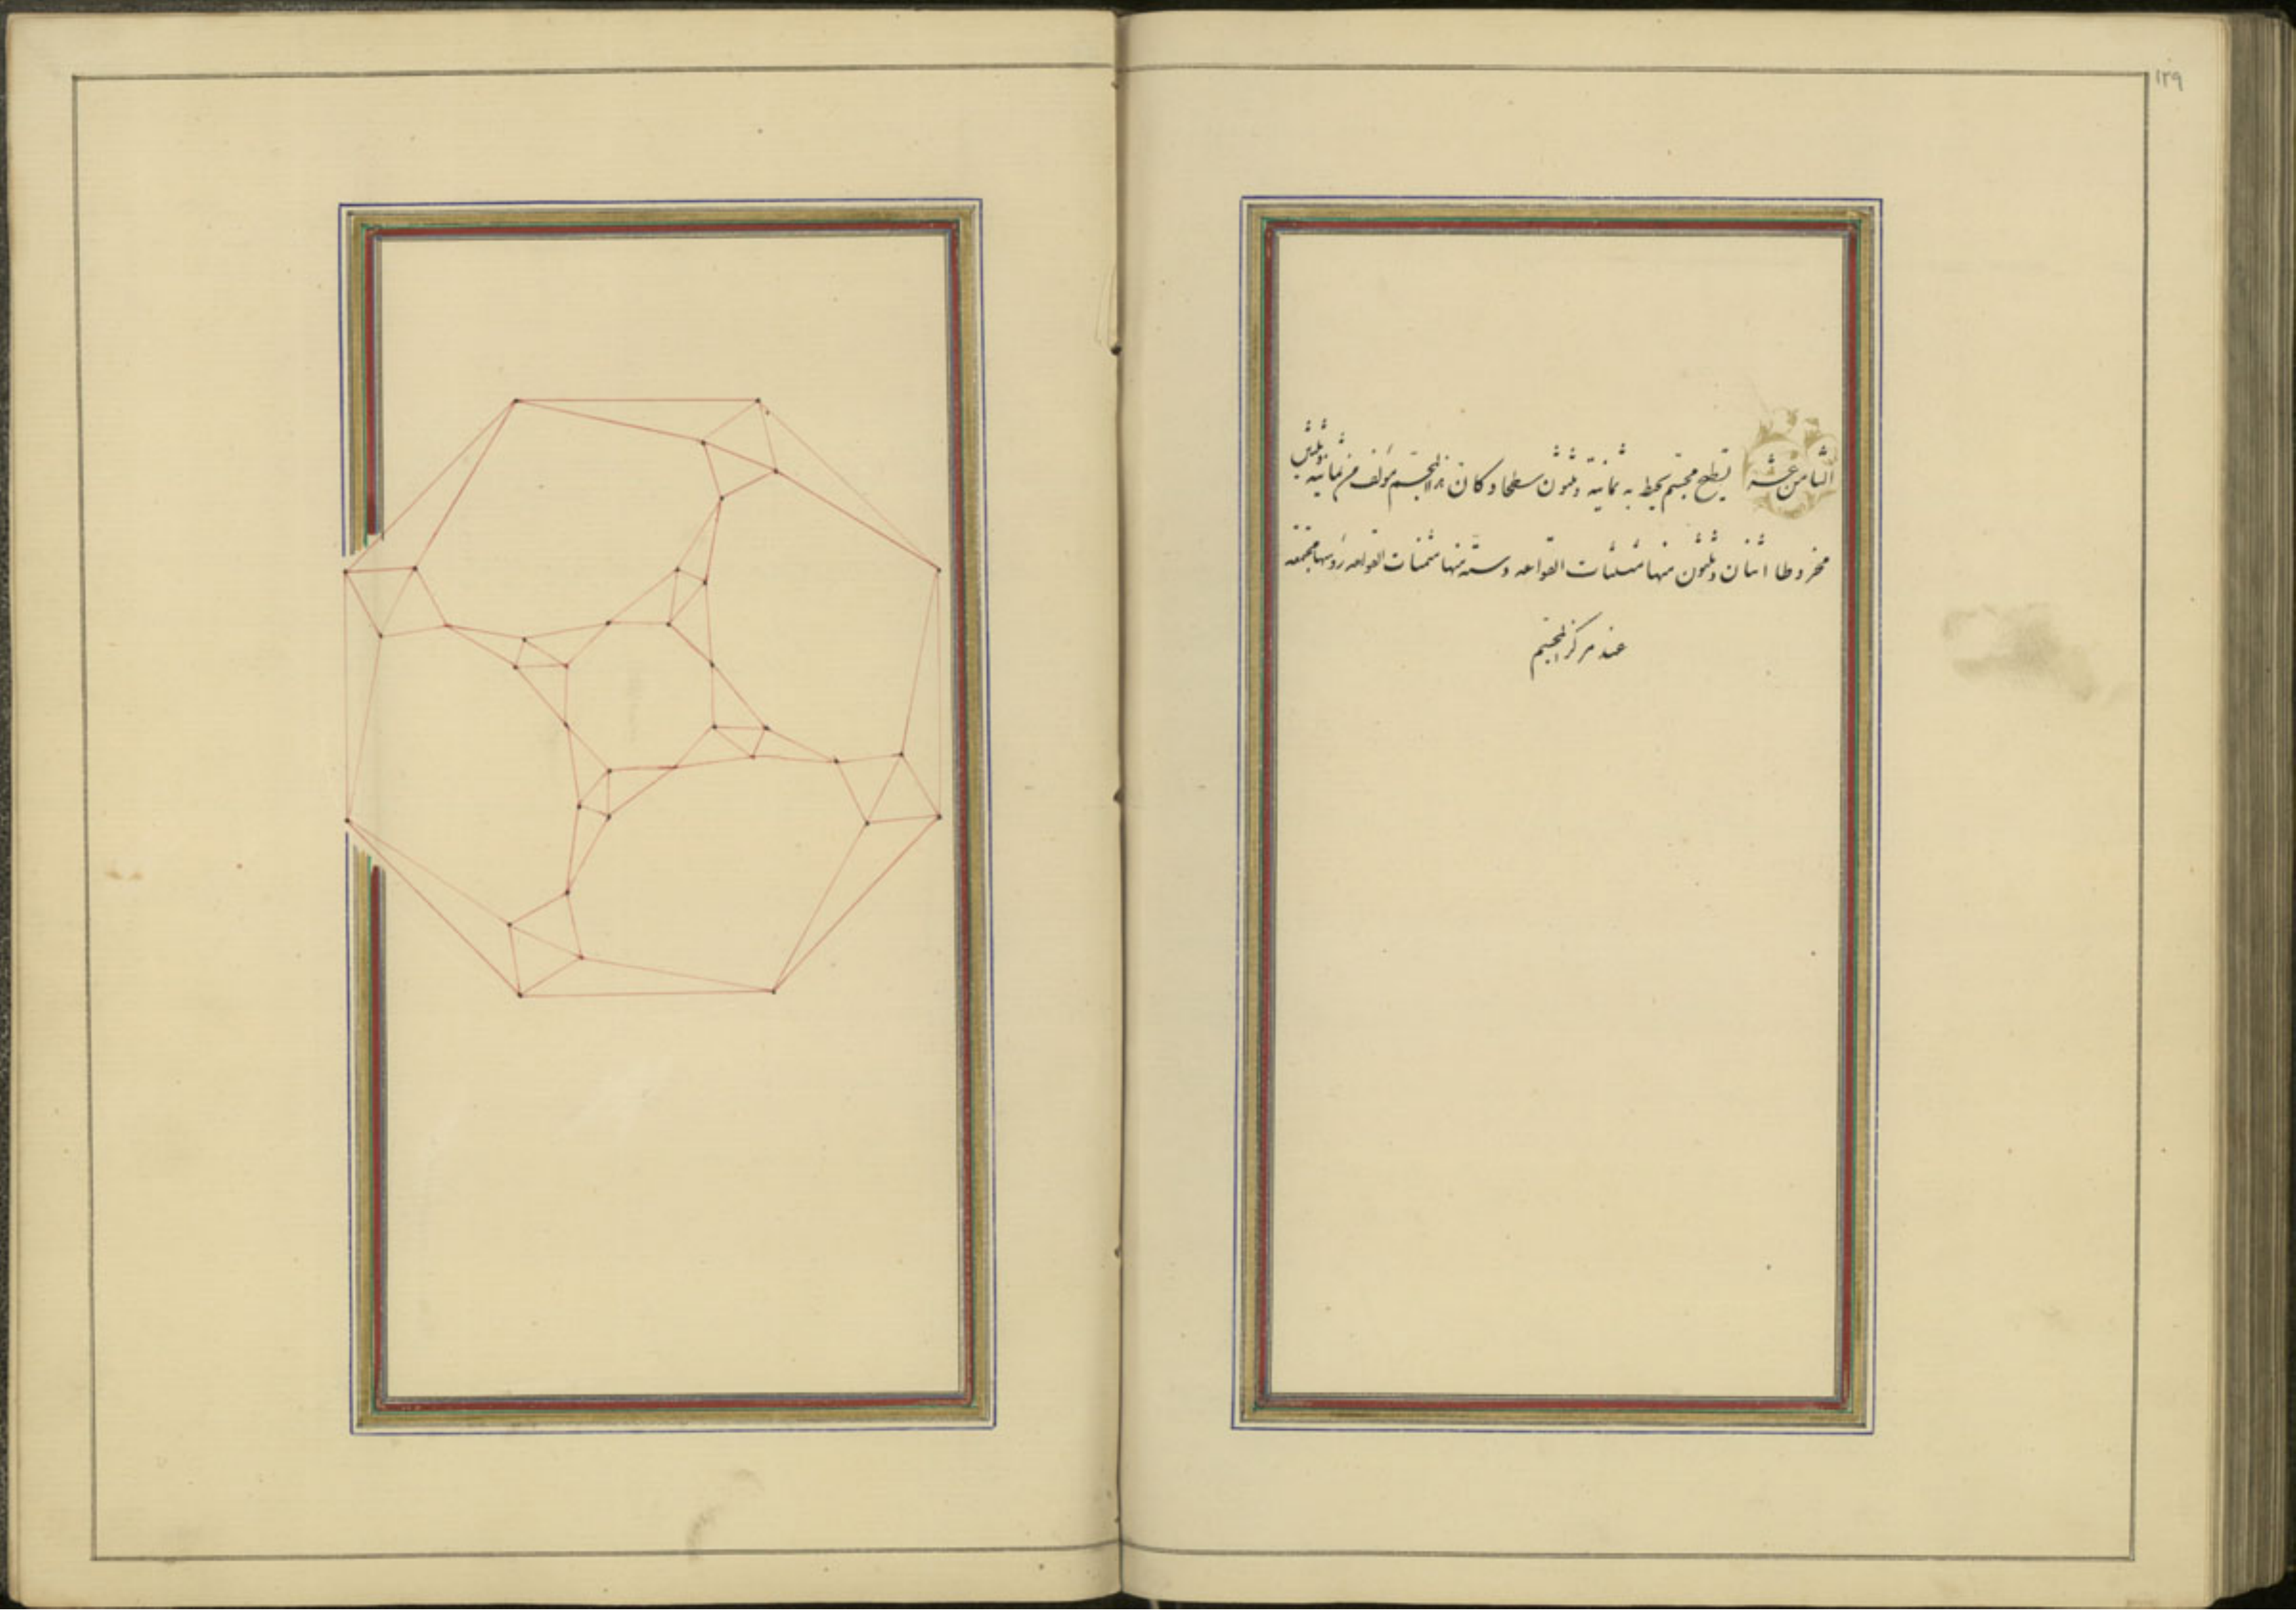 ١٢٩
الثامن عشر قطع مجسم يحيط به ثمانية وثلثون سطحا وكان هذا المجسم مؤلف من ثمانية وثلثين
مخروطا اثنان وثلثون منها مثلثات القواعد وستة منها مثمنات القواعد رؤسها مجتمعة
عند مركز المجسم